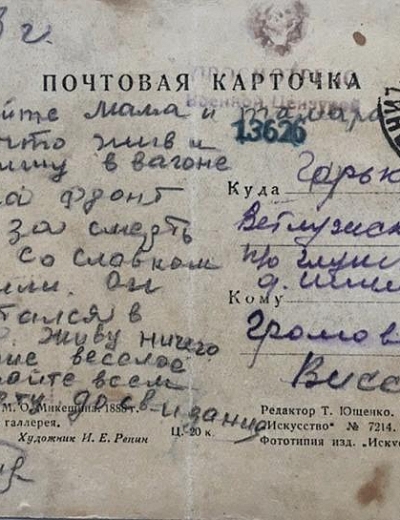 3 г.
ПОЧТОВАЯ КАРТОЧКА
ПРОСМОТРЕНО
Военной Цензурой
13626
йте мама и тамара
что жив и
пишу в вагоне
на фронт
за смерть
со славком
или. Он
тался в
живу ничего
ние веселое
айте всем
ту до свидания
Куда Горьк
Ветлужск
п/о Глуш
Кому д. Шиш
Громов
Висс
М. О. Микешина, 1888 г.
галлерея.
Художник И. Е. Репин
Ц. 20 к.
Редактор Т. Ющенко.
"Искусство" № 7214.
Фототипия изд. „Искус